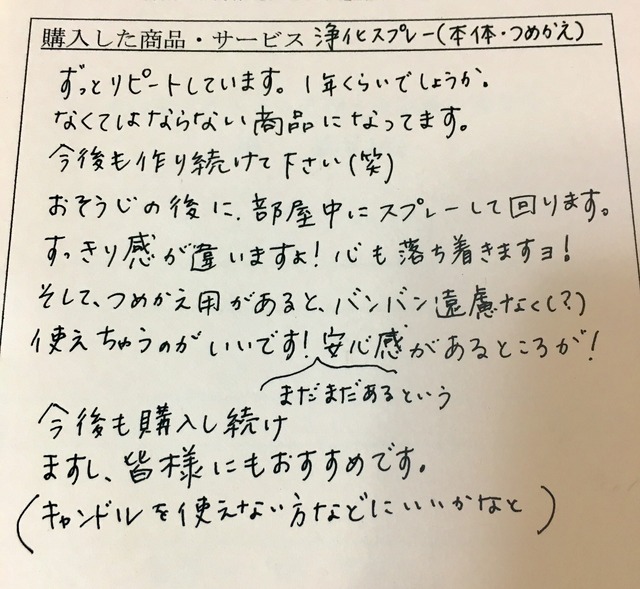 購入した商品・サービス 浄化スプレー(本体・つめかえ)
ずっとリピートしています。1年くらいでしょうか。
なくてはならない商品になってます。
今後も作り続けて下さい(笑)
おそうじの後に、部屋中にスプレーして回ります。
すっきり感が違いますよ!心も落ち着きますョ!
そして、つめかえ用があると、バンバン遠慮なく(?)
使えちゃうのがいいです!安心感があるところが!
まだまだあるという
今後も購入し続け
ますし、皆様にもおすすめです。
(キャンドルを使えない方などにいいかなと)